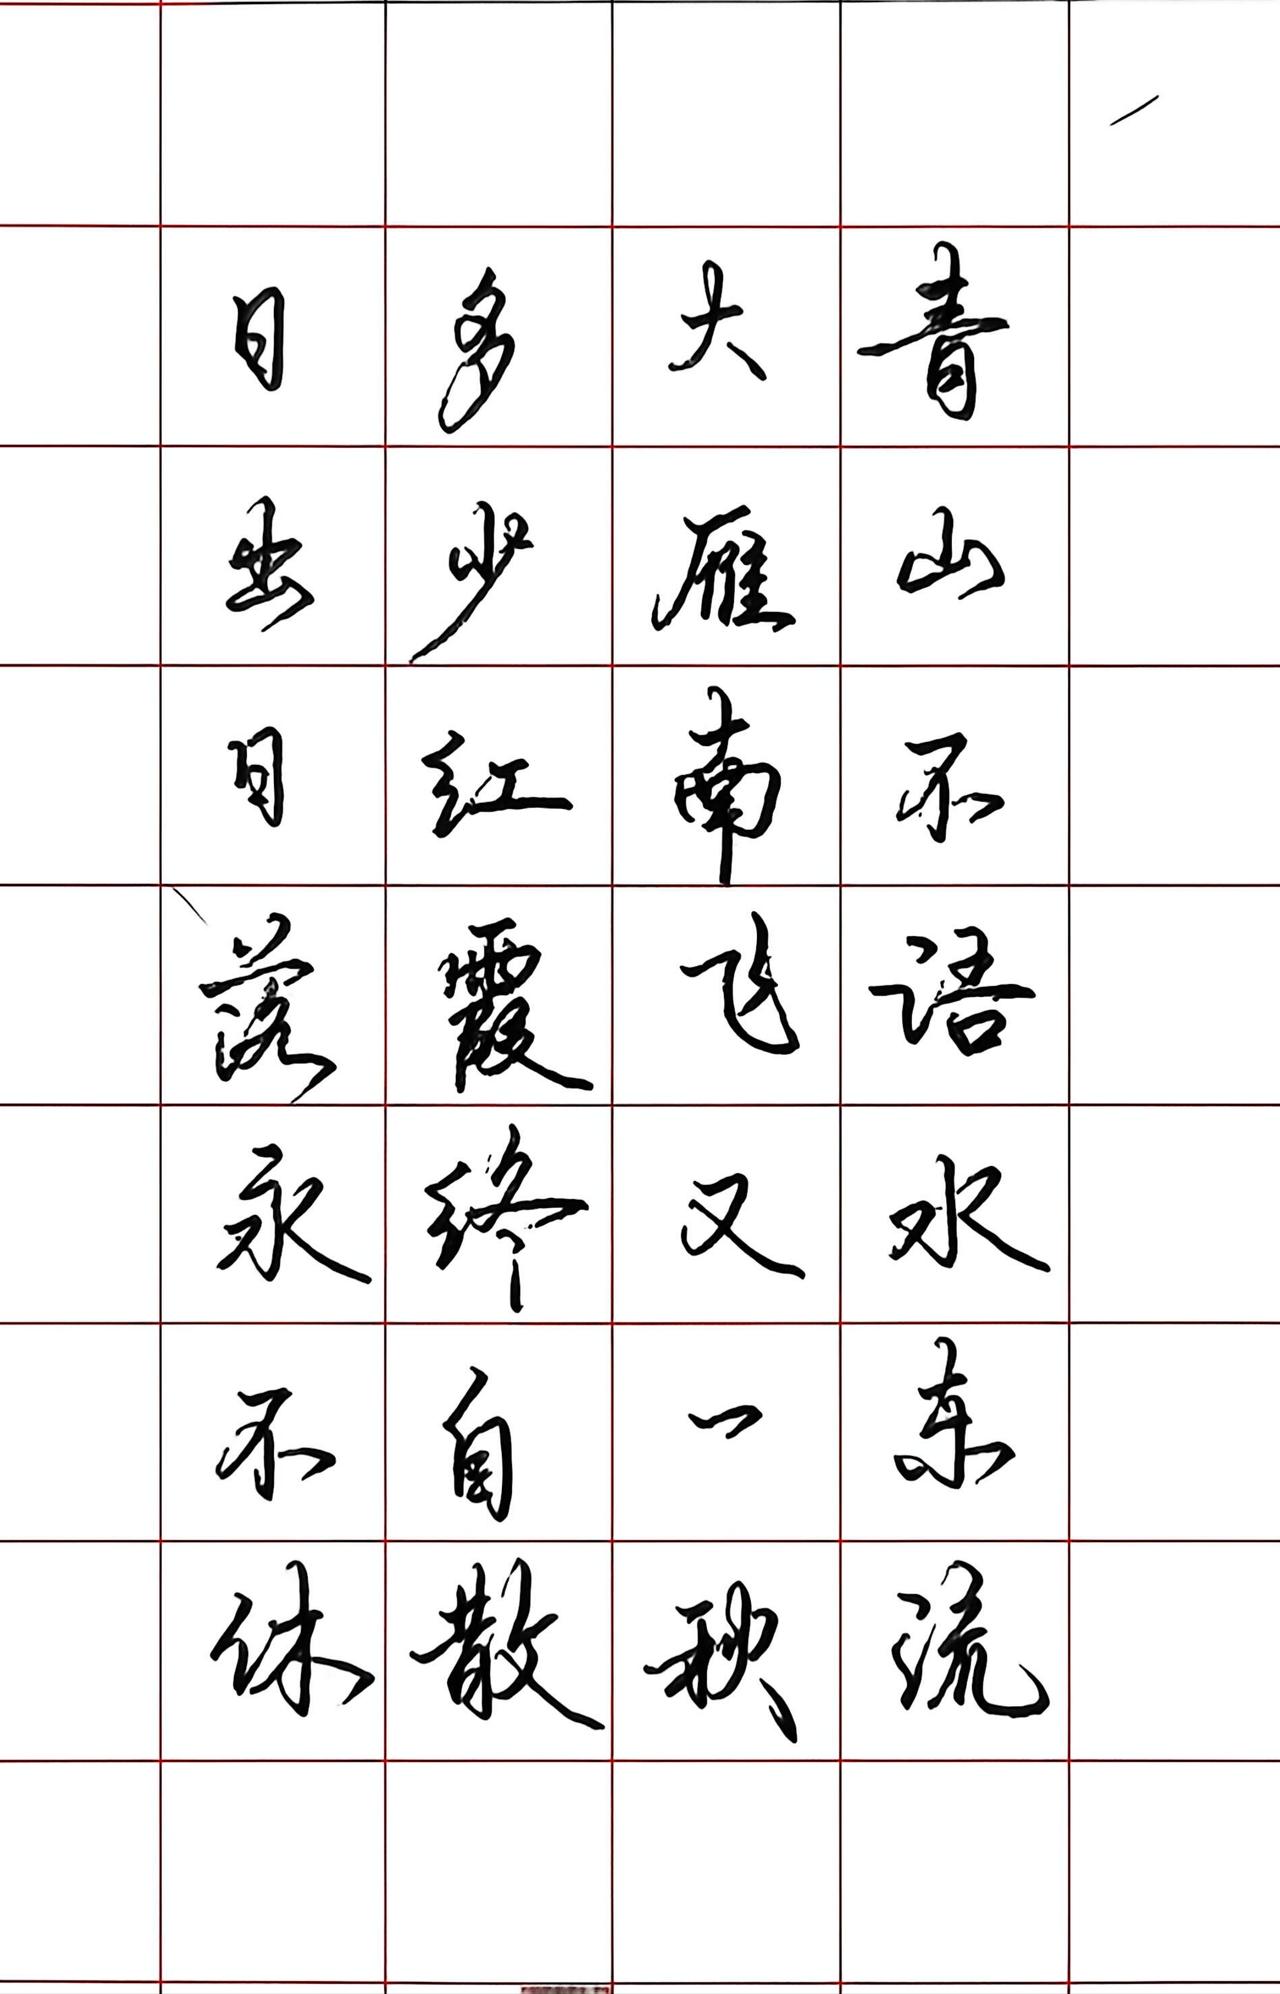 青山不语水东流
大雁南飞又一秋
多少红霞终自散
日出日落永不休